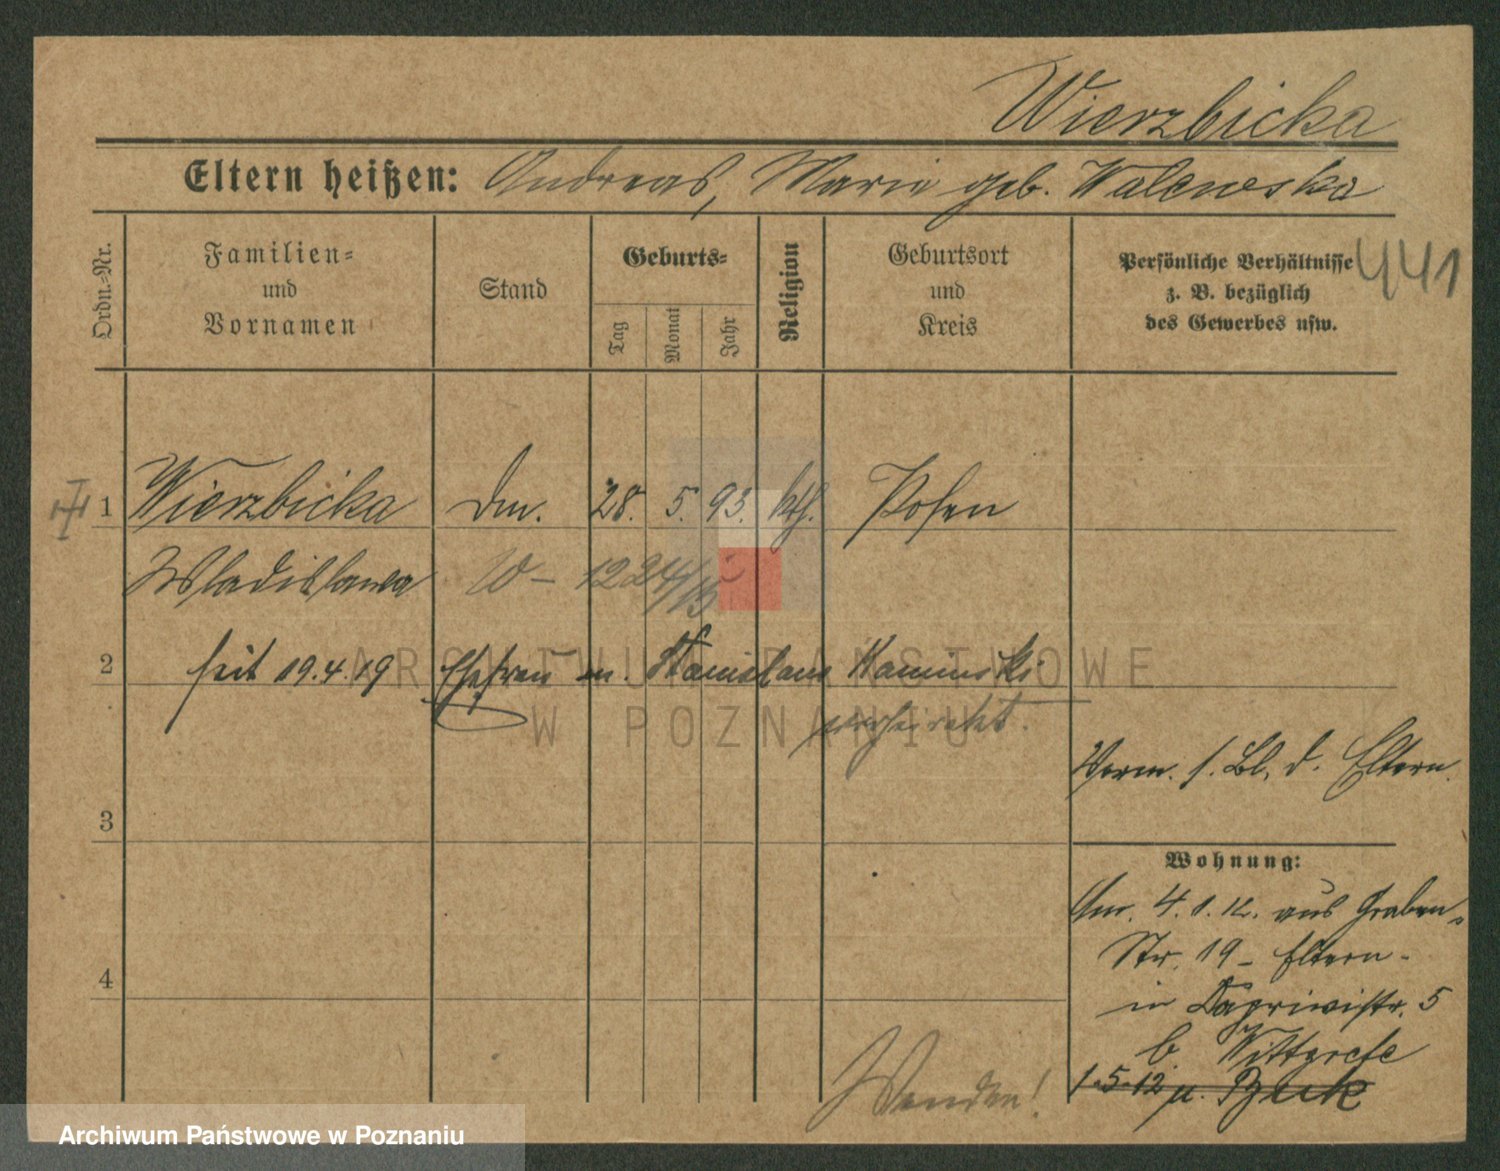 Wierzbicka
Eltern heißen: Andreas, Marie geb. Walewska
Ordn.-Nr.
Familien- und Vornamen
Stand
Geburts-
Tag
Monat
Jahr
Religion
Geburtsort und Kreis
Persönliche Verhältnisse
z. B. bezüglich
des Gewerbes usw.
441
1 Wierzbicka Dm. 28. 5. 93. kth. Posen
Wladislawa
2 seit 19.4.19 Ehefrau m. Stanislaus Kaminski
verheiratet.
Verm. s. Bl. d. Eltern.
3
Wohnung:
4. 1. 12. aus Graben-
Str. 19 - Eltern -
in Caprivistr. 5
b. Wittgrefe
1.5.12 n. Buk
4
Wenden!
ARCHIWUM PAŃSTWOWE
W POZNANIU
Archiwum Państwowe w Poznaniu